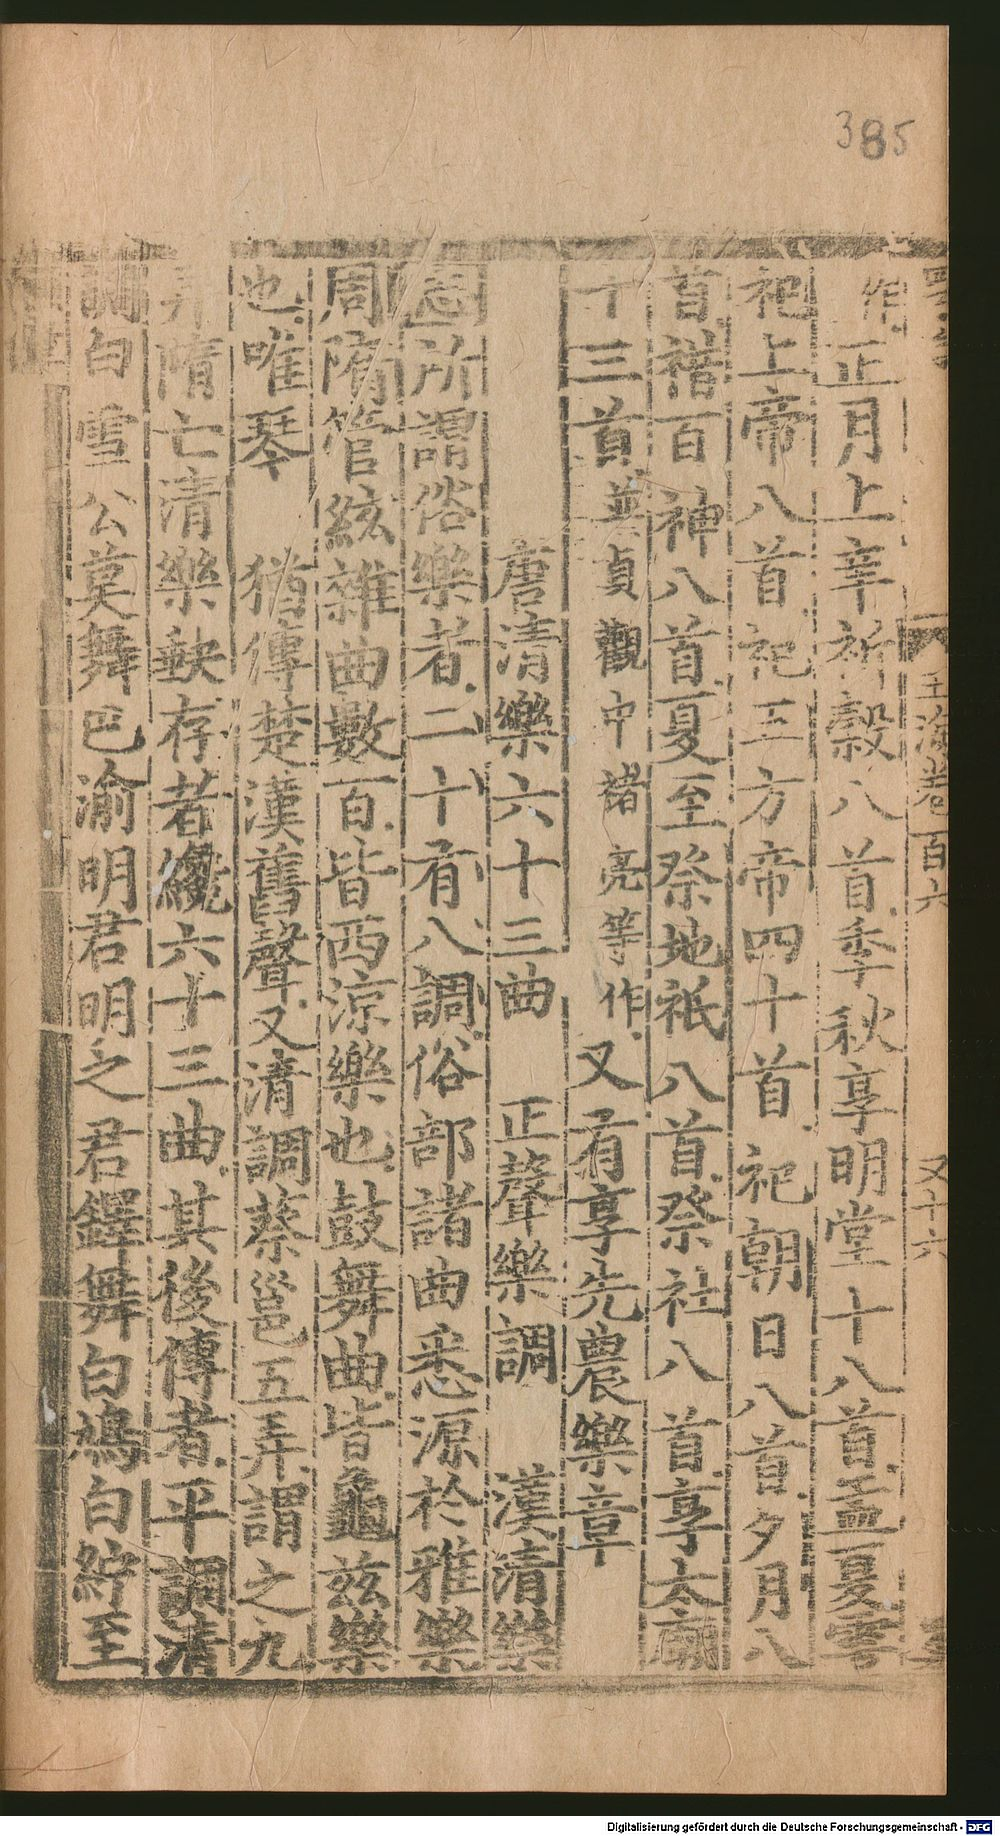 385
玉海卷百六
又十六
作正月上辛祈穀八首季秋享明堂十八首孟夏雩
祀上帝八首祀五方帝四十首祀朝日八首夕月八
首䄍百神八首夏至祭地祇八首祭社八首享太廟
十三首貞觀中褚亮等作又有享先農樂章
唐清樂六十三曲 正聲樂調 漢清樂
志所謂俗樂者二十有八調俗部諸曲悉源於雅樂
周隋管絃雜曲數百皆西涼樂也鼓舞曲皆龜茲樂
也唯琴猶傳楚漢舊聲又清調蔡邕五弄謂之九
弄隋亡清樂𡙇存者纔六十三曲其後傳者平調清
調白雪公莫舞巴渝明君明之君鐸舞白鳩白紵至
Digitalisierung gefördert durch die Deutsche Forschungsgemeinschaft - DFG